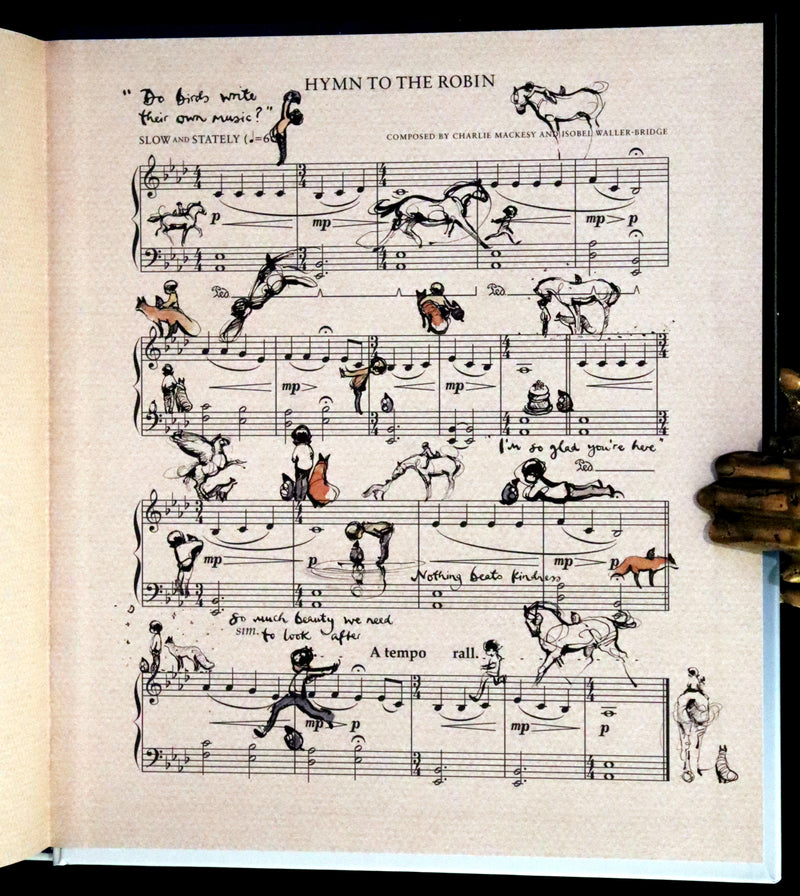 HYMN TO THE ROBIN
"Do birds write
their own music?"
SLOW AND STATELY (♩=6
COMPOSED BY CHARLIE MACKESY AND ISOBEL WALLER-BRIDGE
p mp p mp p
Ped Ped
mp mp
"I'm so glad you're here"
Ped
mp p mp p
Nothing beats kindness
So much beauty we need
sim. to look after
A tempo rall.
mp p mp p